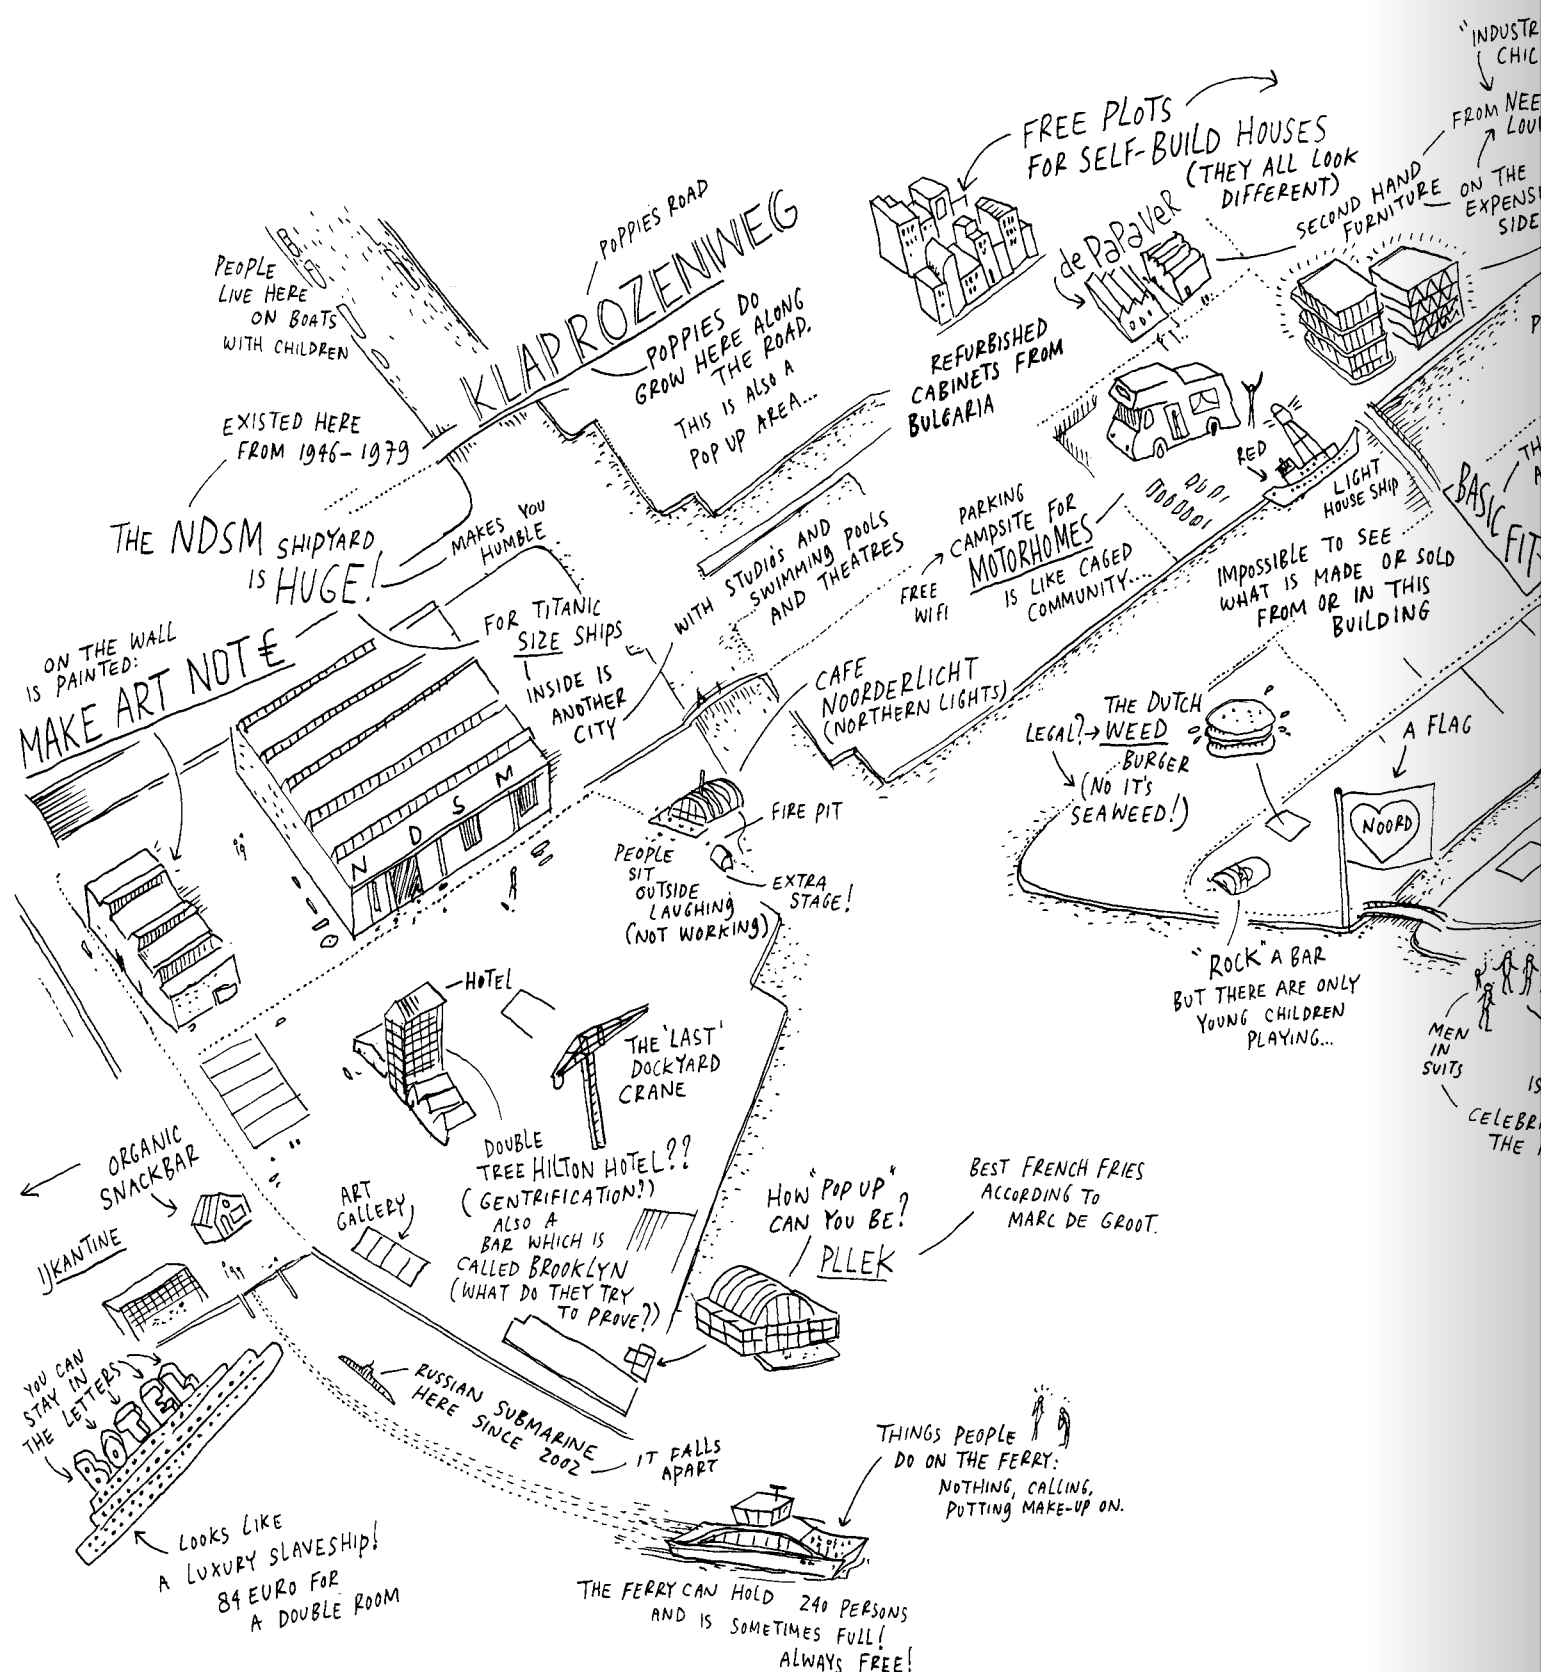 "INDUSTR
CHIC
FROM NEE
LOU
ON THE
EXPENSI
SIDE
FREE PLOTS
FOR SELF-BUILD HOUSES
(THEY ALL LOOK
DIFFERENT)
SECOND HAND
FURNITURE
de PAPAVER
REFURBISHED
CABINETS FROM
BULGARIA
POPPIES ROAD
KLAPROZENWEG
POPPIES DO
GROW HERE ALONG
THE ROAD.
THIS IS ALSO A
POP UP AREA...
PEOPLE
LIVE HERE
ON BOATS
WITH CHILDREN
EXISTED HERE
FROM 1946-1979
THE NDSM SHIPYARD
IS HUGE!
MAKES YOU
HUMBLE
FOR TITANIC
SIZE SHIPS
INSIDE IS
ANOTHER
CITY
WITH STUDIO'S AND
SWIMMING POOLS
AND THEATRES
ON THE WALL
IS PAINTED:
MAKE ART NOT €
NDSM
FREE
WIFI
PARKING
CAMPSITE FOR
MOTORHOMES
IS LIKE CAGED
COMMUNITY...
RED
LIGHT
HOUSE SHIP
BASIC
FIT
IMPOSSIBLE TO SEE
WHAT IS MADE OR SOLD
FROM OR IN THIS
BUILDING
CAFE
NOORDERLICHT
(NORTHERN LIGHTS)
FIRE PIT
EXTRA
STAGE!
PEOPLE
SIT
OUTSIDE
LAUGHING
(NOT WORKING)
LEGAL?
THE DUTCH
WEED
BURGER
(NO IT'S
SEAWEED!)
A FLAG
NOORD
"ROCK" A BAR
BUT THERE ARE ONLY
YOUNG CHILDREN
PLAYING...
MEN
IN
SUITS
IS
CELEBR
THE
HOTEL
THE 'LAST'
DOCKYARD
CRANE
DOUBLE
TREE HILTON HOTEL??
(GENTRIFICATION?)
ALSO A
BAR WHICH IS
CALLED BROOKLYN
(WHAT DO THEY TRY
TO PROVE?)
ORGANIC
SNACKBAR
ART
GALLERY
IJKANTINE
HOW "POP UP"
CAN YOU BE?
PLLEK
BEST FRENCH FRIES
ACCORDING TO
MARC DE GROOT.
YOU CAN
STAY IN
THE LETTERS
BOTEL
LOOKS LIKE
A LUXURY SLAVESHIP!
84 EURO FOR
A DOUBLE ROOM
RUSSIAN SUBMARINE
HERE SINCE
2002
IT FALLS
APART
THINGS PEOPLE
DO ON THE FERRY:
NOTHING, CALLING,
PUTTING MAKE-UP ON.
THE FERRY CAN HOLD 240 PERSONS
AND IS SOMETIMES FULL!
ALWAYS FREE!